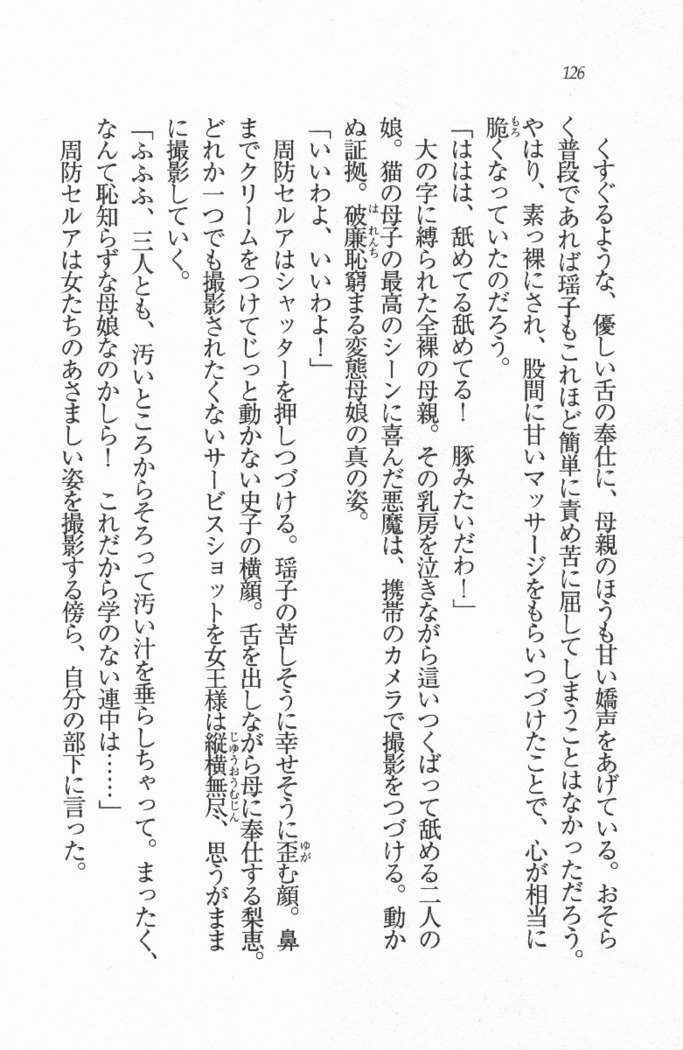 126
くすぐるような、優しい舌の奉仕に、母親のほうも甘い嬌声をあげている。おそら
く普段であれば瑶子もこれほど簡単に責め苦に屈してしまうことはなかっただろう。
やはり、素っ裸にされ、股間に甘いマッサージをもらいつづけたことで、心が相当に
脆くなっていたのだろう。
「ははは、舐めてる舐めてる！　豚みたいだわ！」
大の字に縛られた全裸の母親。その乳房を泣きながら這いつくばって舐める二人の
娘。猫の母子の最高のシーンに喜んだ悪魔は、携帯のカメラで撮影をつづける。動か
ぬ証拠。破廉恥窮まる変態母娘の真の姿。
「いいわよ、いいわよ！」
周防セルアはシャッターを押しつづける。瑶子の苦しそうに幸せそうに歪む顔。鼻
までクリームをつけてじっと動かない史子の横顔。舌を出しながら母に奉仕する梨恵。
どれか一つでも撮影されたくないサービスショットを女王様は縦横無尽、思うがまま
に撮影していく。
「ふふふ、三人とも、汚いところからそろって汚い汁を垂らしちゃって。まったく、
なんて恥知らずな母娘なのかしら！　これだから学のない連中は……」
周防セルアは女たちのあさましい姿を撮影する傍ら、自分の部下に言った。